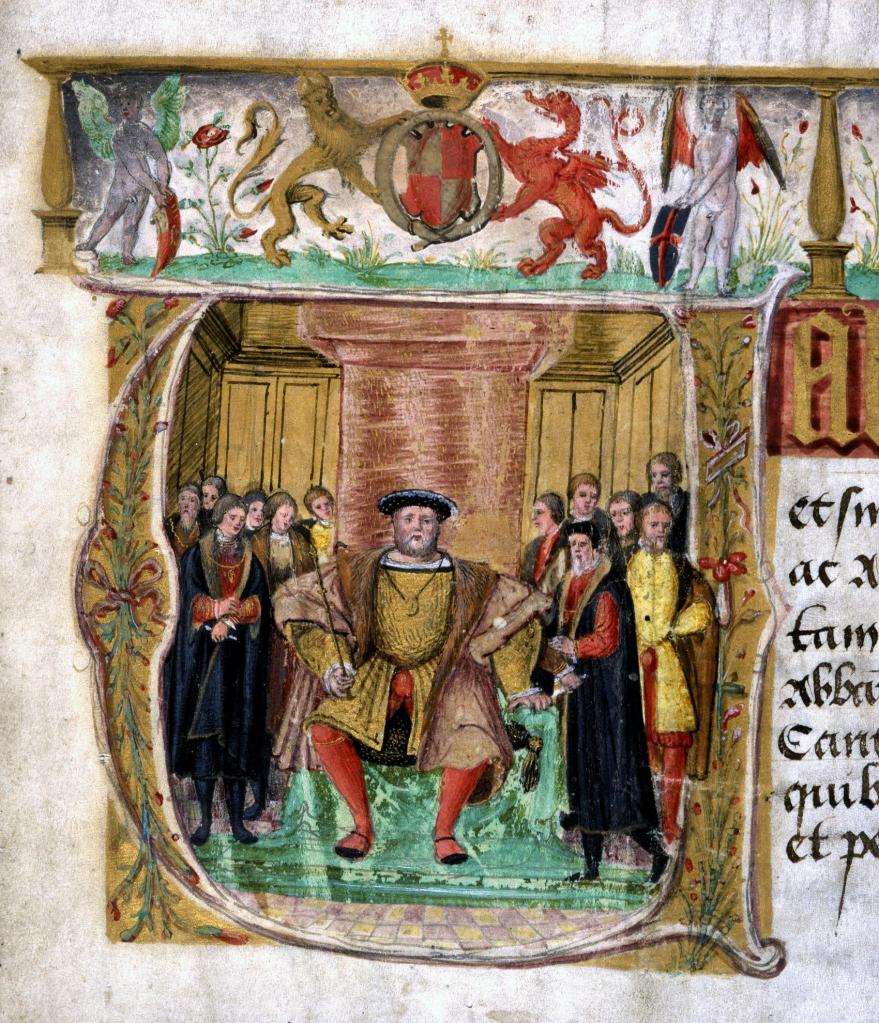 A
et sin
ac A
tam
Abba
Cant
quib
et pe